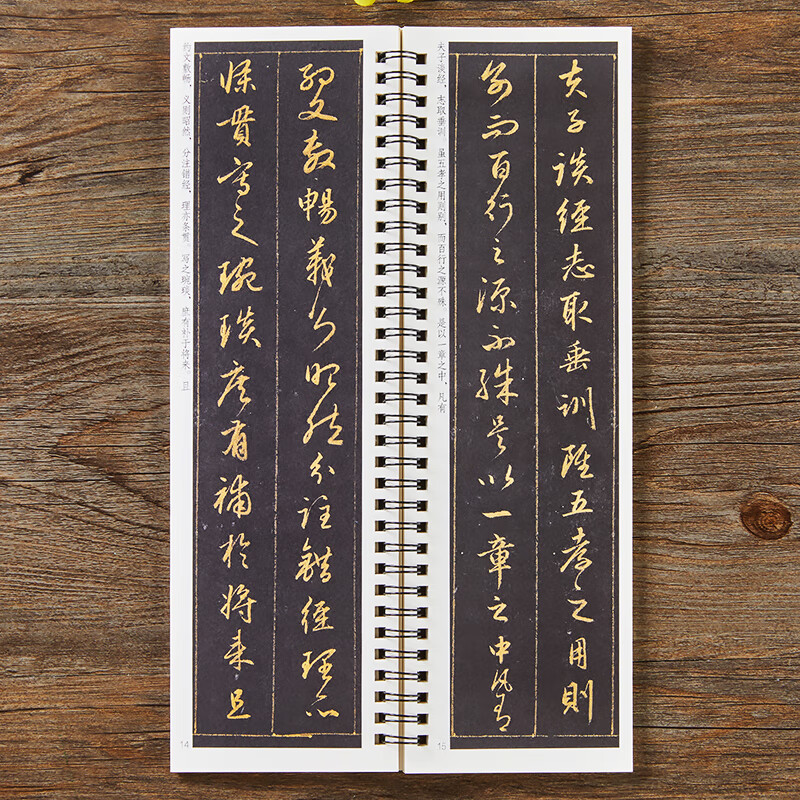 约文敷畅，义则昭然，分注错经，理亦条贯，写之琬琰，庶有补于将来，且
約文敷暢義則昭然分註錯經理亦
條貫寫之琬琰庶有補於將來且
14
夫子谈经，志取垂训，虽五孝之用则别，而百行之源不殊，是以一章之中，凡有
夫子談經志取垂訓雖五孝之用則
別而百行之源不殊是以一章之中凡有
15